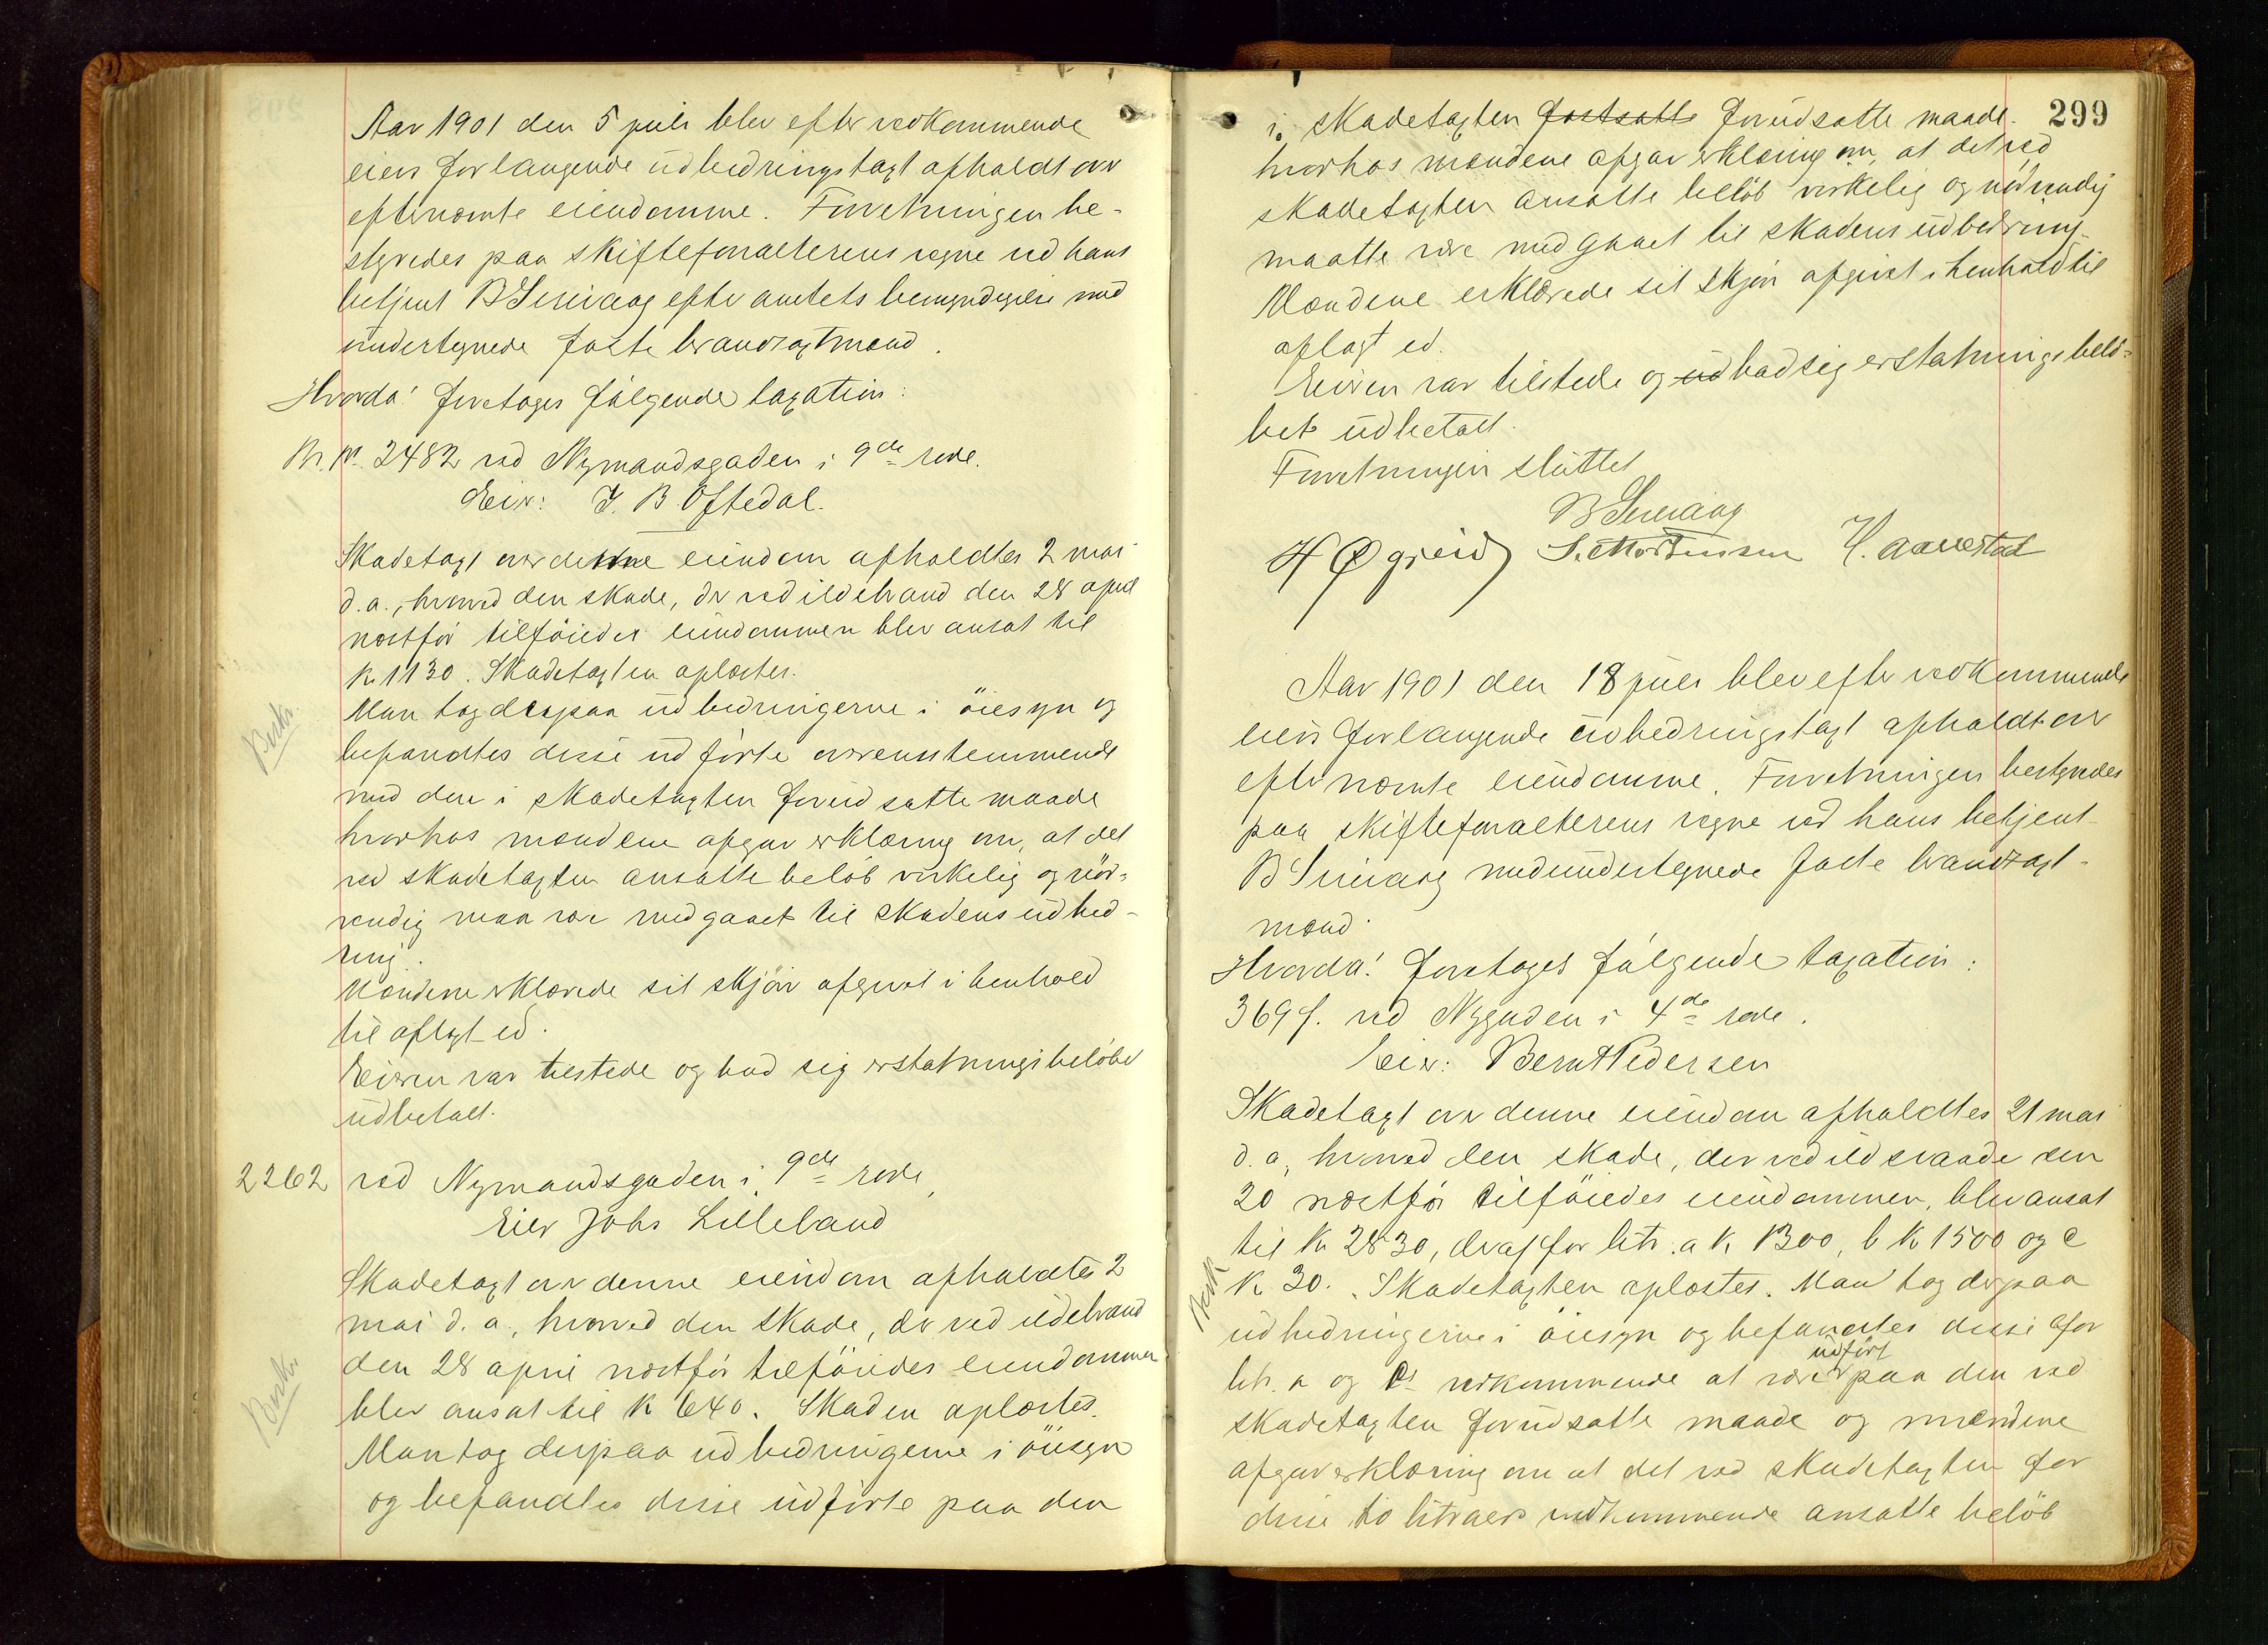 Aar 1901 den 5 juli blev efter vedkommende
eiers forlangende udbedringstaxt afholdt over
efternævnte eiendomme. Forretningen be-
styredes paa skifteforvalterens vegne ved hans
betjent B Smaaog efter amtets bemyndigelse med
undertegnede faste brandtaxtmænd.
Hvorda! foretoges følgende taxation:
Br. Nr. 2482 ved Nymandsgaden i 9de rode.
Eier: J. B Oftedal.
Skadetaxt over denne eiendom afholdtes 2 mai
d. a., hvorved den skade, der ved ildebrand den 28 april
næstfør tilføiedes eiendommen blev ansat til
K. 1130. Skadetaxten oplæstes.
Man tog derpaa udbedringerne i öiesyn og
befandtes disse udførte overensstemmende
med den i skadetaxten forudsatte maade
hvorhos mændene afgav erklæring om, at det
ved skadetaxten ansatte beløb virkelig og nød-
vendig maa være medgaaet til skadens udbed-
ring.
Mændene erklærede sit skjøn afgivet i henhold
til aflagt ed.
Eieren var tilstede og bad sig erstatningsbeløbet
udbetalt.
2262 ved Nymandsgaden i 9de rode,
Eier Johs Lilleland
Skadetaxt over denne eiendom afholdtes 2
mai d. a., hvorved den skade, der ved ildebrand
den 28 april næstfør tilføiedes eiendommen
blev ansat til K 640. Skaden oplæstes.
Man tog derpaa udbedringerne i öiesyn
og befandtes disse udførte paa den
299
i skadetaxten fastsatte forudsatte maade.
hvorhos mændene afgav erklæring om, at det ved
skadetaxten ansatte beløb virkelig og nødvendig
maatte være medgaaet til skadens udbedring.
Mændene erklærede sit skjøn afgivet i henhold til
aflagt ed.
Eieren var tilstede og ud bad sig erstatningsbelø-
bet udbetalt.
Forretningen sluttet
B Smaaog
H Øgreid S. Mortensen H. Aarrestad
Aar 1901 den 18 juli blev efter vedkommende
eiers forlangende udbedringstaxt afholdt over
efternævnte eiendomme. Forretningen bestyredes
paa skifteforvalterens vegne ved hans betjent
B Smaaog med undertegnede faste brandtaxt-
mænd.
Hvorda! foretoges følgende taxation:
369 f. ved Nygaden i 4de rode.
Eier: Bernt Pedersen
Skadetaxt over denne eiendom afholdtes 21 mai
d. a., hvorved den skade, der ved ildsvaade den
20 næstfør tilføiedes eiendommen, blev ansat
til K 2830, deraf for litr. a K 1300, b K 1500 og c
K 30. Skadetaxten oplæstes. Man tog derpaa
udbedringerne i öiesyn og befandtes disse for
udført
litr. a og c's vedkommende at være paa den ved
skadetaxten forudsatte maade og mændene
afgav erklæring om at det ved skadetaxten for
disse to litraers vedkommende ansatte beløb